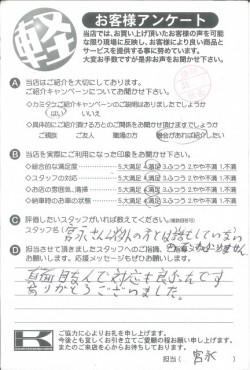 軽 お客様アンケート
当店では、お買い上げ頂いたお客様の声を可能
な限り現場に反映し、お客様により良い商品と
サービスを提供する事に努めています。
大変お手数ですが是非お声をお聞かせ下さい。
A 当店はご紹介を大切にしております。
ご紹介キャンペーンについてお聞かせ下さい。
◇カミタケご紹介キャンペーンのご説明はありましたでしょうか
はい いいえ
◇具体的にご紹介頂ける方とのご関係をお聞かせ頂けますでしょうか
ご親族 ご友人 職場の方 機会があれば紹介したい
B 当店を実際にご利用になった印象をお聞かせ下さい。
◇総合的な満足度 5.大満足 4.満足 3.ふつう 2.やや不満 1.不満
◇スタッフの対応 5.大満足 4.満足 3.ふつう 2.やや不満 1.不満
◇お店の雰囲気、清掃 5.大満足 4.満足 3.ふつう 2.やや不満 1.不満
◇納車時のお車の状態 5.大満足 4.満足 3.ふつう 2.やや不満 1.不満
C 評価したいスタッフがいれば教えてください。(複数回答可)
スタッフ名( 宮永さん以外の方とは話をしていない
D 担当させて頂きましたスタッフへのご指摘、ご指導
お願いします。応援メッセージもぜひお願いします。
真面目な人で対応も良かったです
ありがとうございました。
K
ご協力に心よりお礼を申し上げます。
今後とも宜しくお引き立てご愛顧の程お願い申し上げます。
またのご来店を心からお待ちしております。
担当( 宮永 )